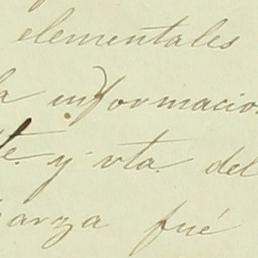 elementales
la informacio
te. y vta. del
arza fué